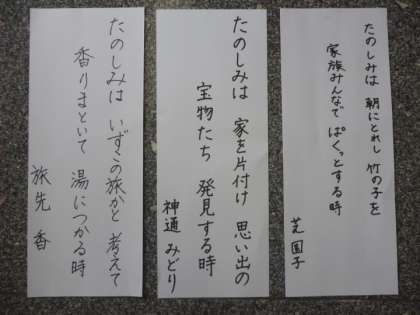 たのしみは 朝にとれし 竹の子を
家族みんなで ぱくっとする時
芝園子
たのしみは 家を片付け 思い出の
宝物たち 発見する時
神通 みどり
たのしみは いずこの旅かと 考えて
香りまといて 湯につかる時
旅先 香